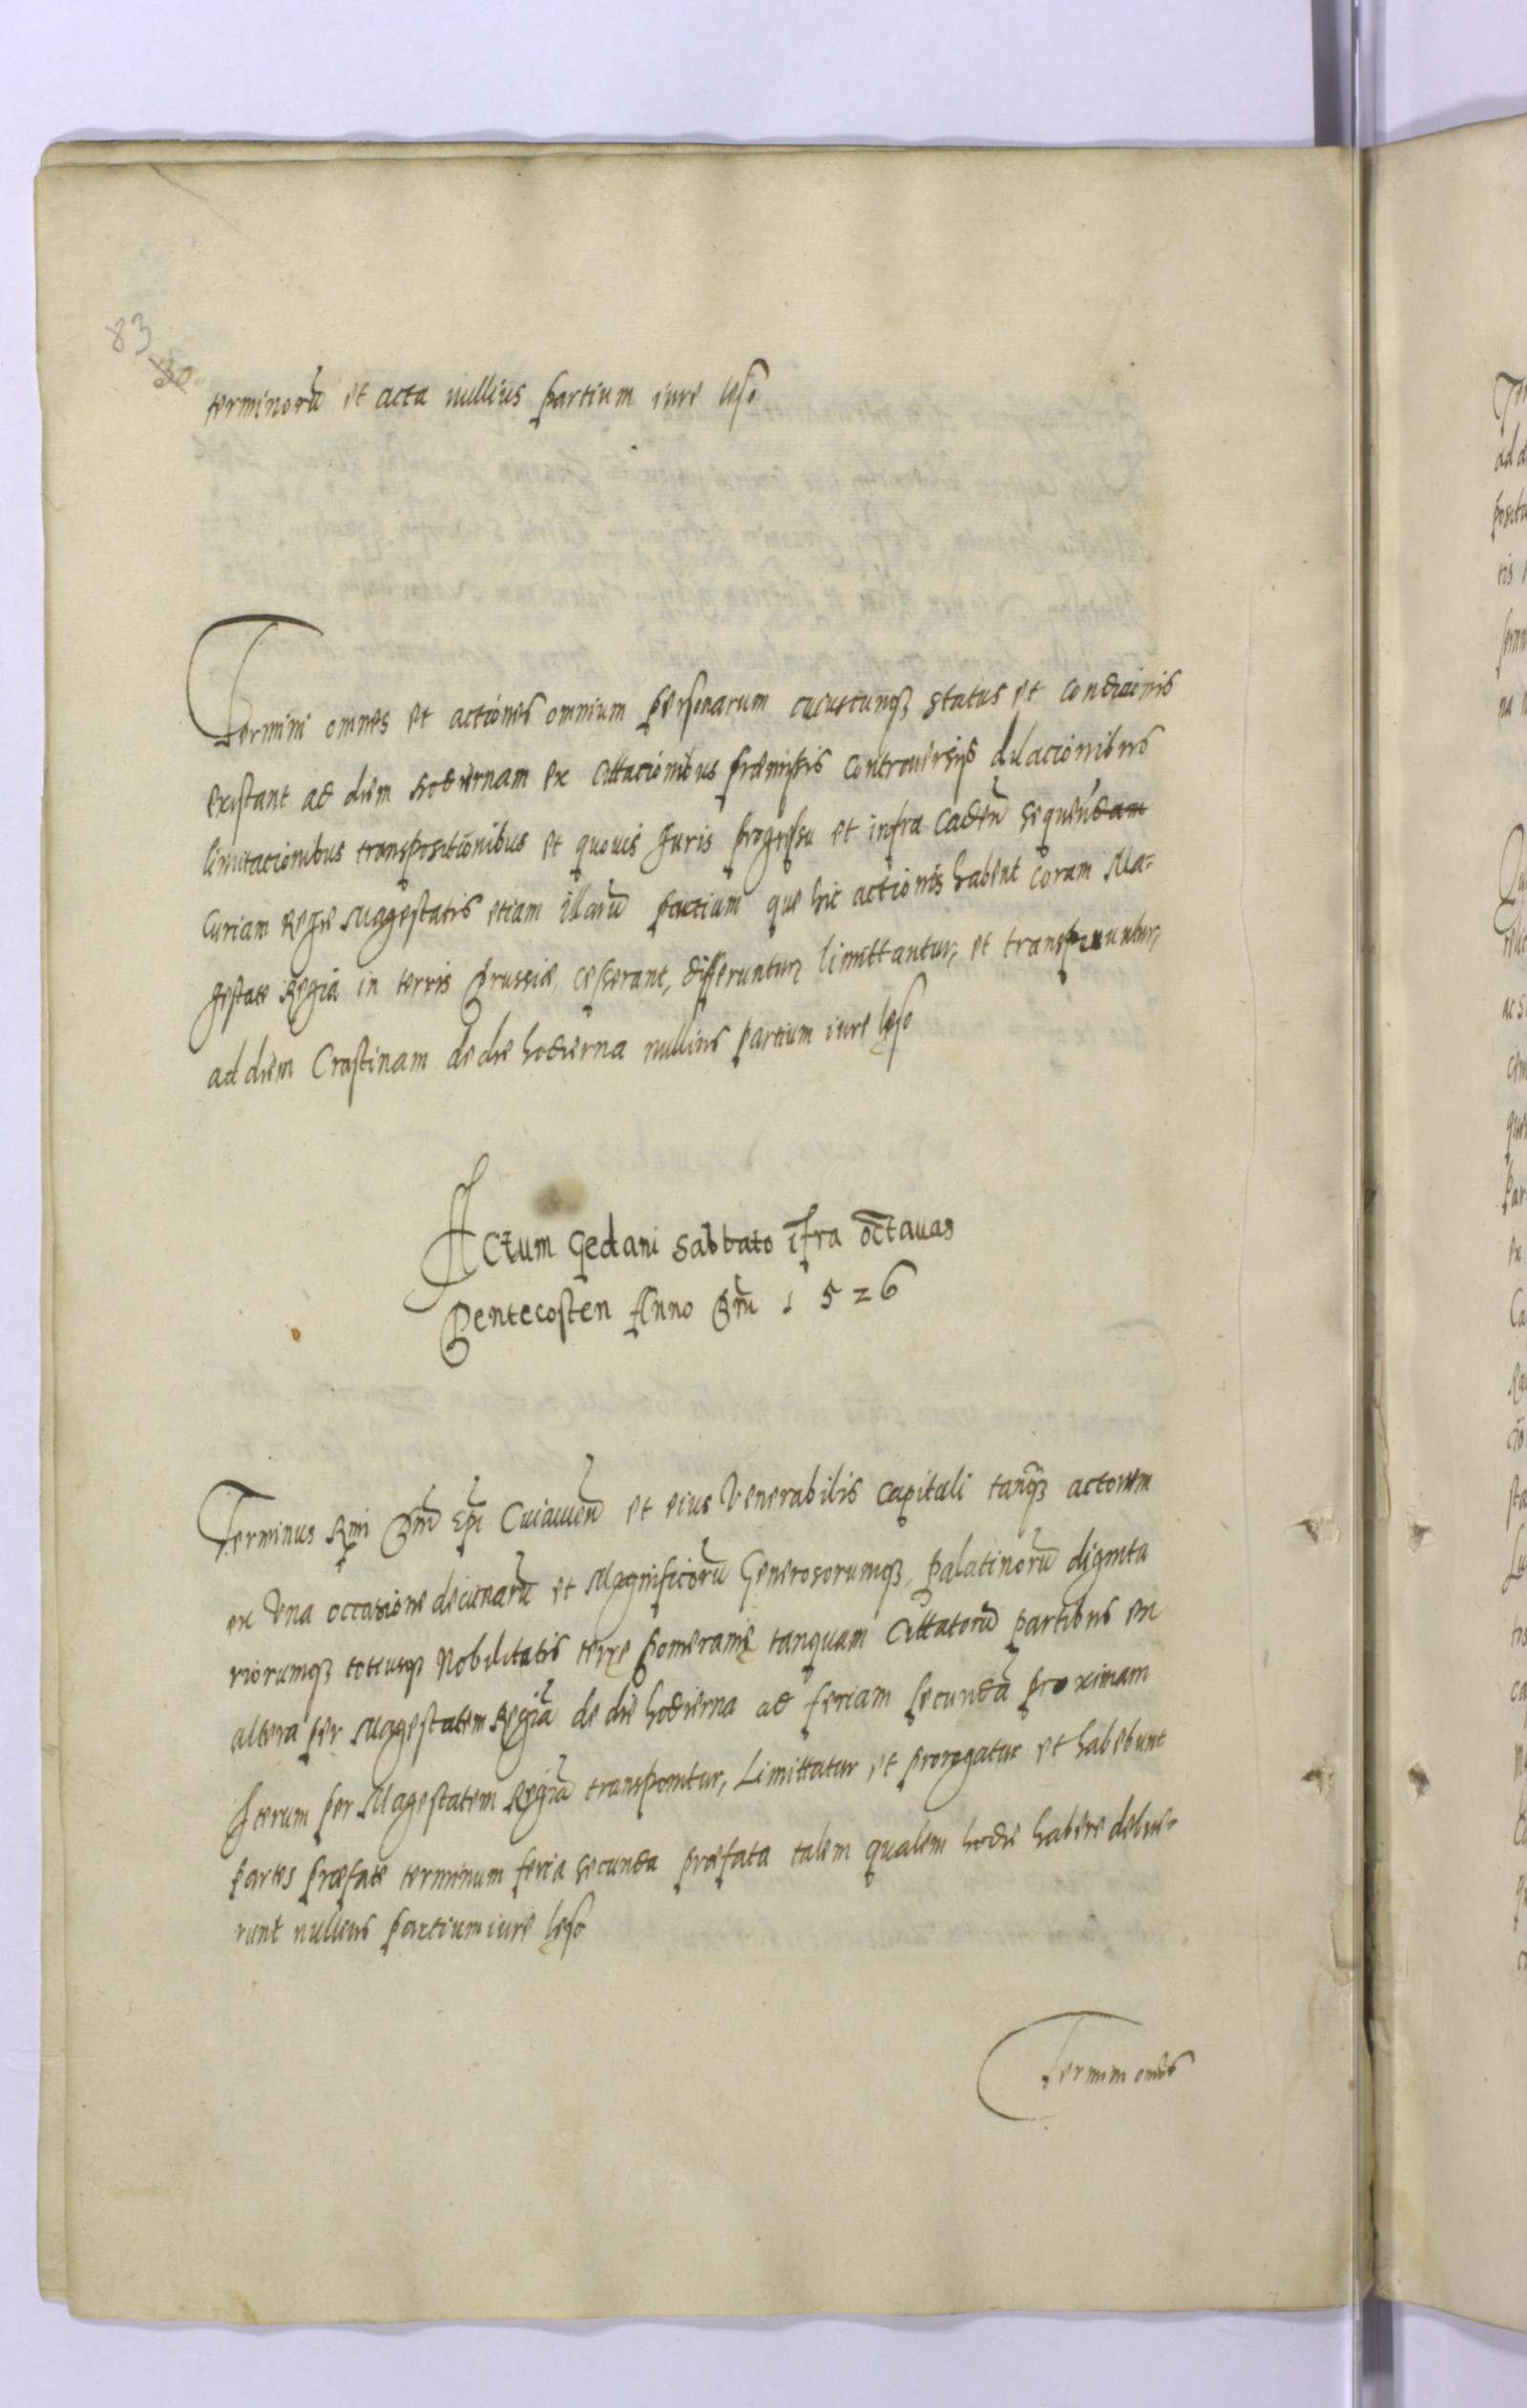 83
80
terminorū et acta nullius partium iure leso
Termini omnes et actiones omnium personarum cuiuscunqȝ status et condicionis
existant ad diem hodiernam ex Cittacionibus præmissis Controuersijs dilacionibus
limitacionibus transpositionibus et quouis Juris progressu et infra Cadeñ sequendam
Curiam Regie Magestatis etiam illarū partium que hic actionis habent Coram Ma-
gestate Regia in terris Prussiæ cesserant, differuntur, limittantur, et transponuntur,
ad diem Crastinam de die hodierna nullius partium iure leso
Actum Gedani Sabbato ifra octauas
Pentecosten Anno Dm̄ 1526
Terminus Rmi Dm̄ Epi Cuiauieñ et eius Venerabilis Capituli tanqȝ actorum
ex Vna occasione decimarū et Magnificorū Generosorumqȝ, palatinorū dignita
riorumqȝ totiusqȝ Nobilitatis terre pomeranię tanquam Cittatorū partibus ex
altera per Magestatem Regiā de die hodierna ad feriam secundā proximam
Iterum per Magestatem Regiā transponitur, Limittatur et prorogatur et habebunt
partes præfate terminum feria secunda præfata talem qualem hodie habere debue-
runt nullius partium iure leso
Termini om̄es